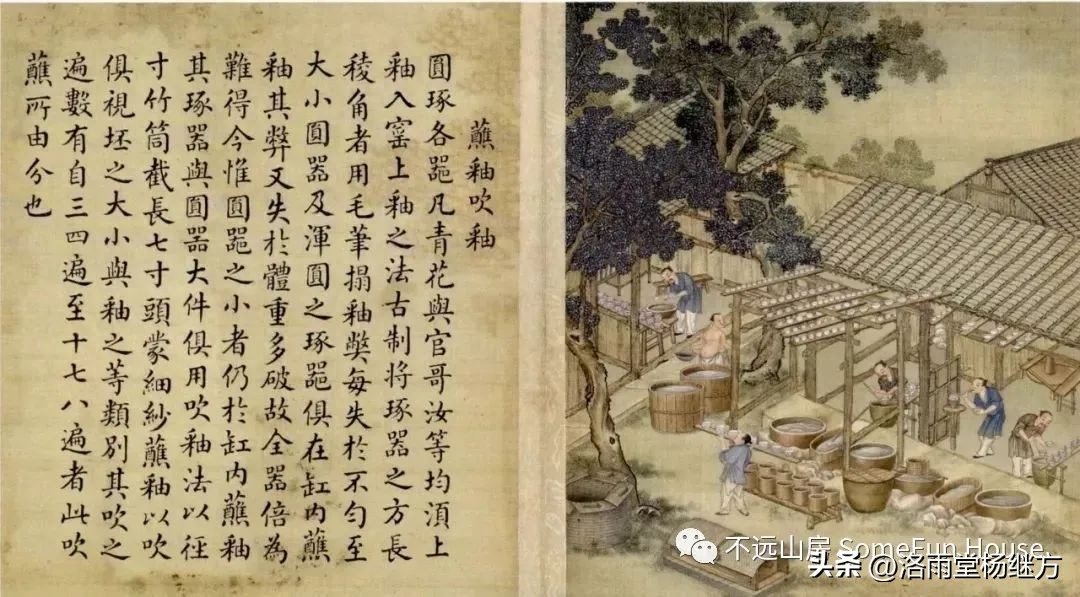 蘸釉吹釉
圓琢各器凡青花與官哥汝等均湏上
釉入窑上釉之法古制將琢器之方長
稜角者用毛筆搨釉獘每失於不勻至
大小圓器及渾圓之琢器俱在缸內蘸
釉其弊又失於體重多破故全器倍為
難得今惟圓器之小者仍於缸內蘸釉
其琢器與圓器大件俱用吹釉法以徑
寸竹筒截長七寸頭蒙細紗蘸釉以吹
俱視坯之大小與釉之等類別其吹之
遍數有自三四遍至十七八遍者此吹
蘸所由分也
不远山房 SomeFun House
头条 @洛雨堂杨继方